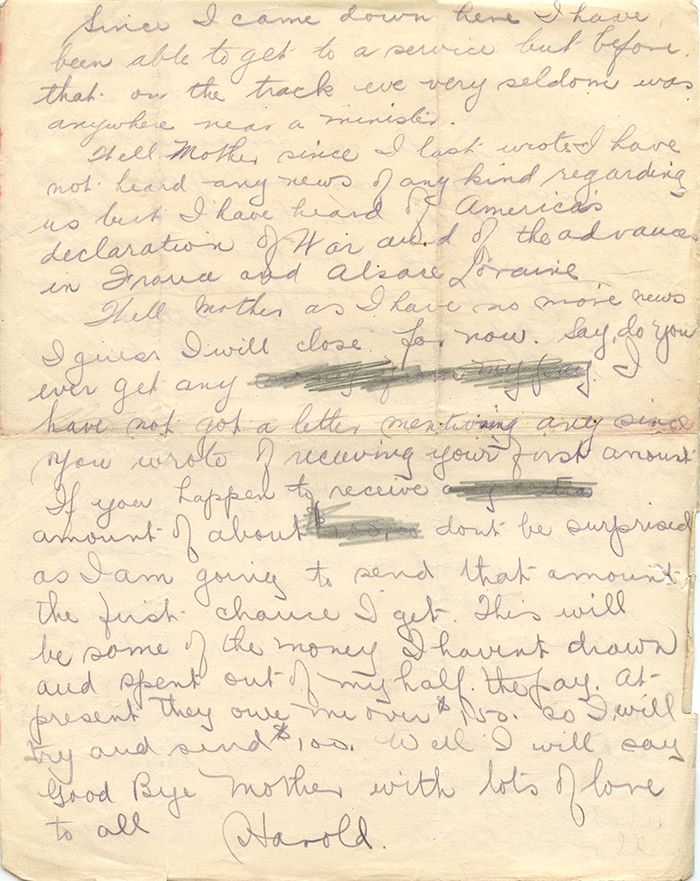 Since I came down here I have
been able to get to a service but before
that on the track eve very seldom was
anywhere near a minister.
Well Mother since I last wrote I have
not heard any news of any kind regarding
us but I have heard of America's
declaration of War and of the advances
in France and Alsace Loraine
Well Mother as I have no more news
I guess I will close for now. Say, do you
ever get any my pay. I
have not got a letter mentioning any since
you wrote of receiving your first amount
If you happen to receive any
amount of about $100.00 dont be surprised
as I am going to send that amount
the first chance I get. This will
be some of the money I havent drawn
and spent out of my half. the pay. At
present they owe me over $150. so I will
try and send $100. Well I will say
Good Bye Mother with lots of love
to all Harold.